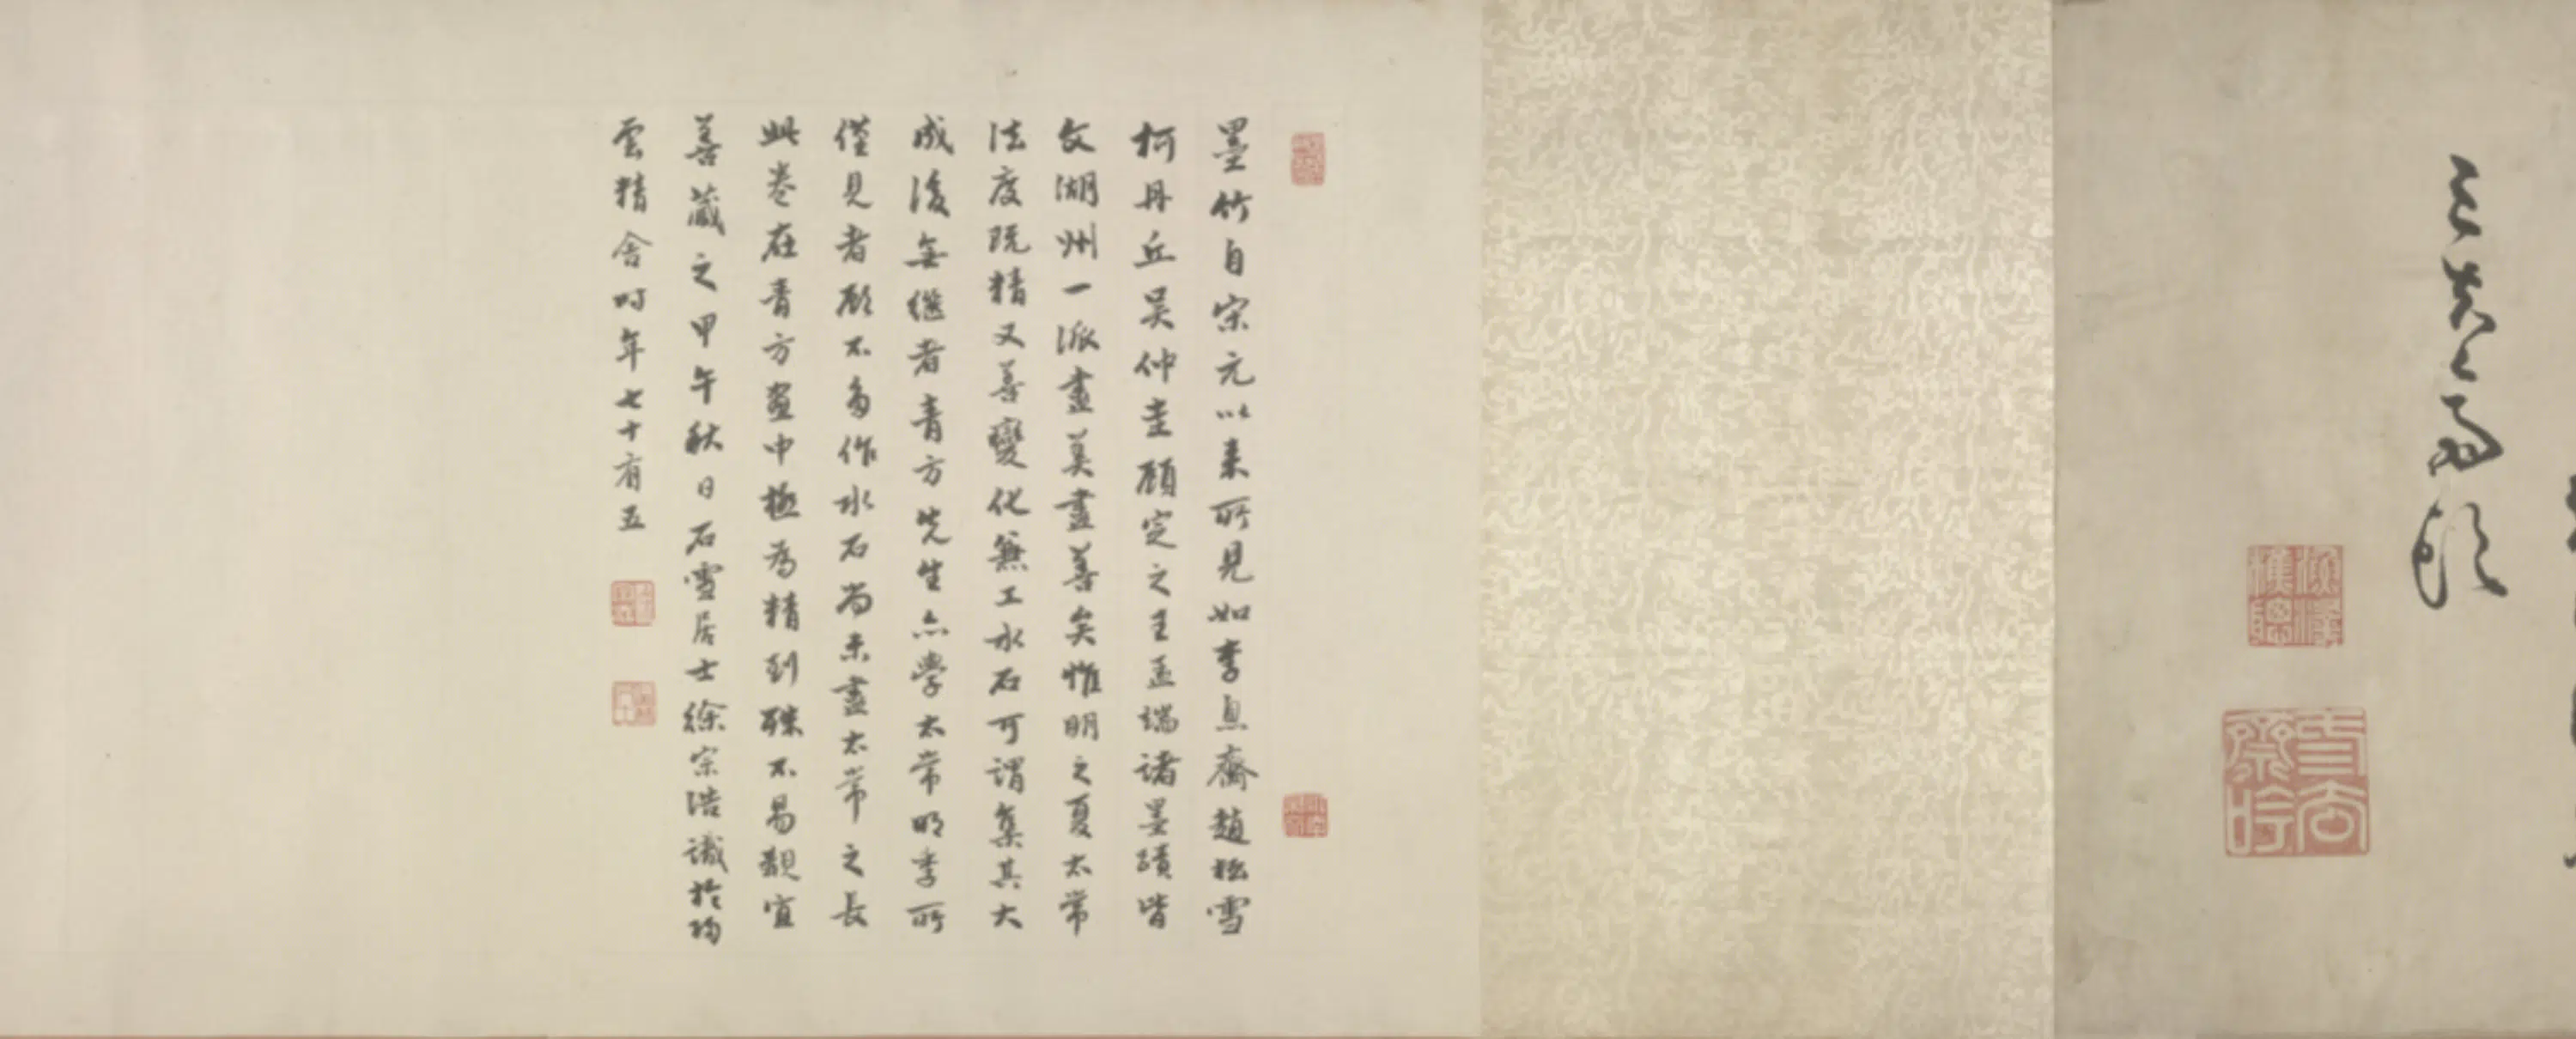 墨竹自宋元以来所見如李息齋趙松雪
柯丹丘吴仲圭顧定之王孟端諸墨蹟皆
文湖州一派盡美盡善矣惟明之夏太常
法度既精又善變化無工水石可謂集其大
成後無繼者青方先生亦學太常明季所
僅見者顧不多作水石尚未盡太常之長
此卷在青方畫中極為精到殊不易觀宜
善藏之甲午秋日石雪居士徐宗浩識於
雲精舍时年七十有五